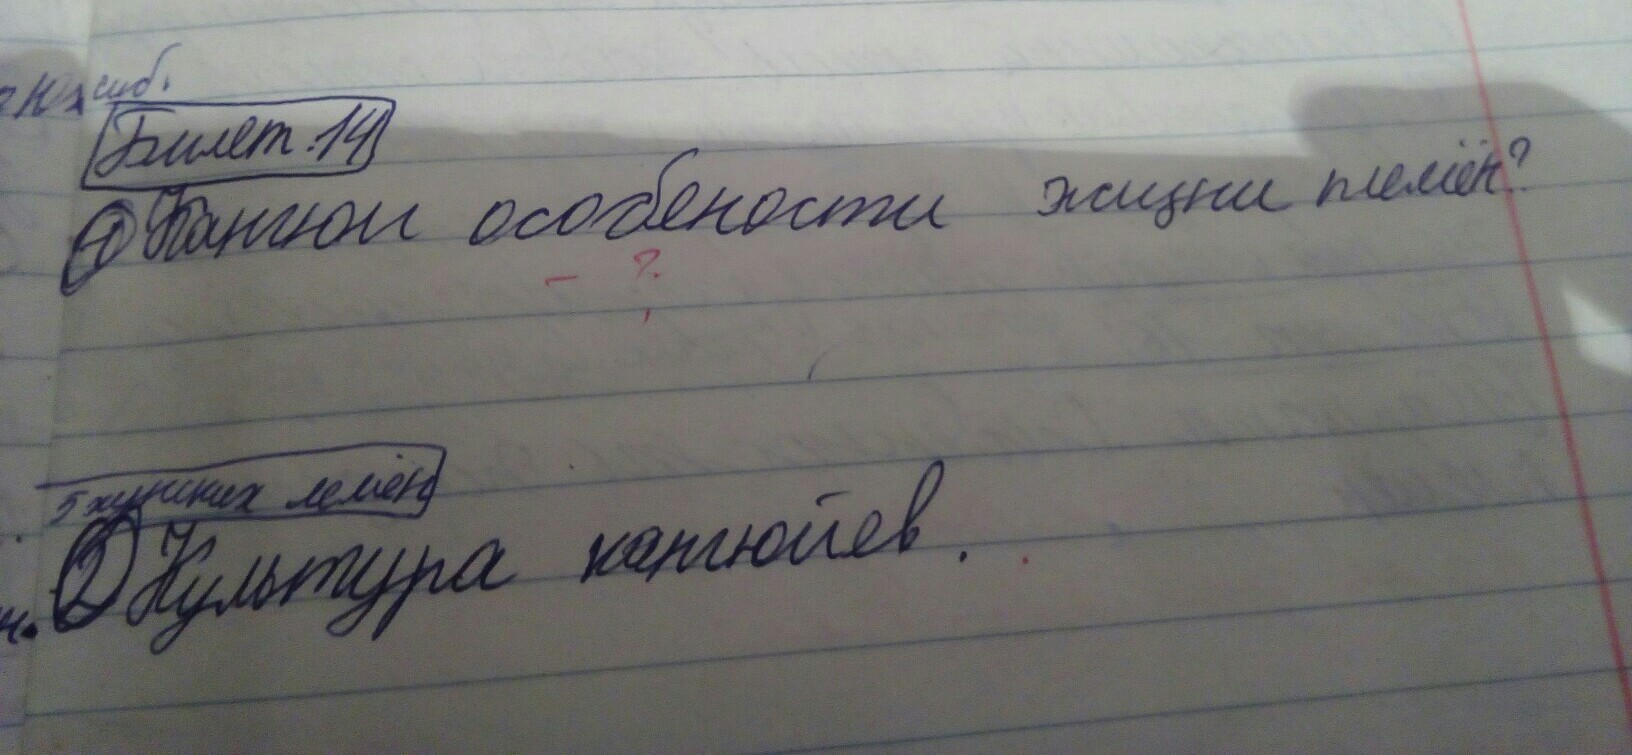 Билет.14
1 Кангюи особености жизни племён?
- ?
5 хуниких лемён
2 Культура кангюйев.